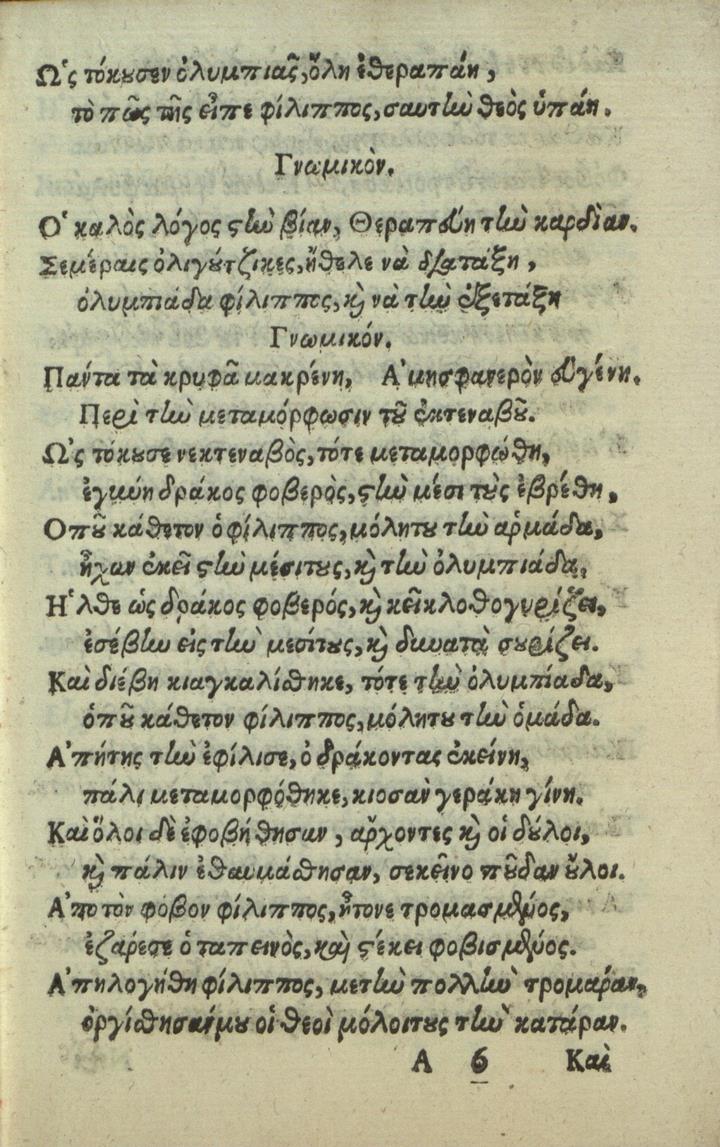 Ω῾ς τόκουσεν ὀλυμπιᾶς, ὅλη ἐθεραπάη,
τὸ πῶς τῆς εἶπε φίλιππος, σαυτὴν θεὸς ὑπάη.
Γνωμικὸν.
Ο῾ καλὸς λόγος στὴν βίαν, Θεραπεύη τὴν καρδίαν.
Σεμέραις ὀλιγούτζικες, ἤθελε νὰ διατάξη,
ὀλυμπιάδα φίλιππος, καὶ νὰ τὴν ἐξετάξη
Γνωμικόν.
Πάντα τὰ κρυφᾶ μακρένη, Α᾿μησφανερὸν εὐγένη.
Περὶ τὴν μεταμόρφωσιν τοῦ ἐκτεναβοῦ.
Ω᾿ς τόκουσε νεκτεναβὸς, τότε μεταμορφώθη,
ἐγιύη δράκος φοβερὸς, στὴν μέσι τους ἐβρέθη,
Οποῦ κάθετον ὁ φίλιππος, μόλητου τὴν αρμάδα,
ἦχαν ἐκεῖ στὴν μέσιτους, καὶ τὴν ὀλυμπιάδα,
Η῏λθε ὡς δράκος φοβερός, καὶ κεῖ κλοθογυρίζει,
ἐσέβην εἰς τὴν μεσίτους, καὶ δυνατὰ συρίζει.
Καὶ διέβη κιαγκαλίσθηκε, τότε τὴν ὀλυμπίαδα,
ὁποῦ κάθετον φίλιππος, μόλητου τὴν ὁμάδα.
Α᾿πήτης τὴν ἐφίλισε, ὁ δράκοντας ἐκείνη,
πάλι μεταμορφόθηκε, κιοσὰν γεράκη γίνη.
Καὶ ὅλοι δὲ ἐφοβήθησαν, αὔχοντες καὶ οἱ δούλοι,
καὶ πάλιν ἐθαυμάσθησαν, σεκεῖνο ποῦδαν οὖλοι.
Α᾿πο τὸν φόβον φίλιππος, ἦτονε τρομασμένος,
ἐζάρεσε ὁ ταπεινὸς, καὶ στέκει φοβισμένος.
Α᾿πηλογήθη φίλιππος, μετὴν πολλὴν τρομάραν,
ὀργίσθησαίμου οἱ θεοὶ μόλοιτους τὴν κατάραν.
Α 6 Καὶ